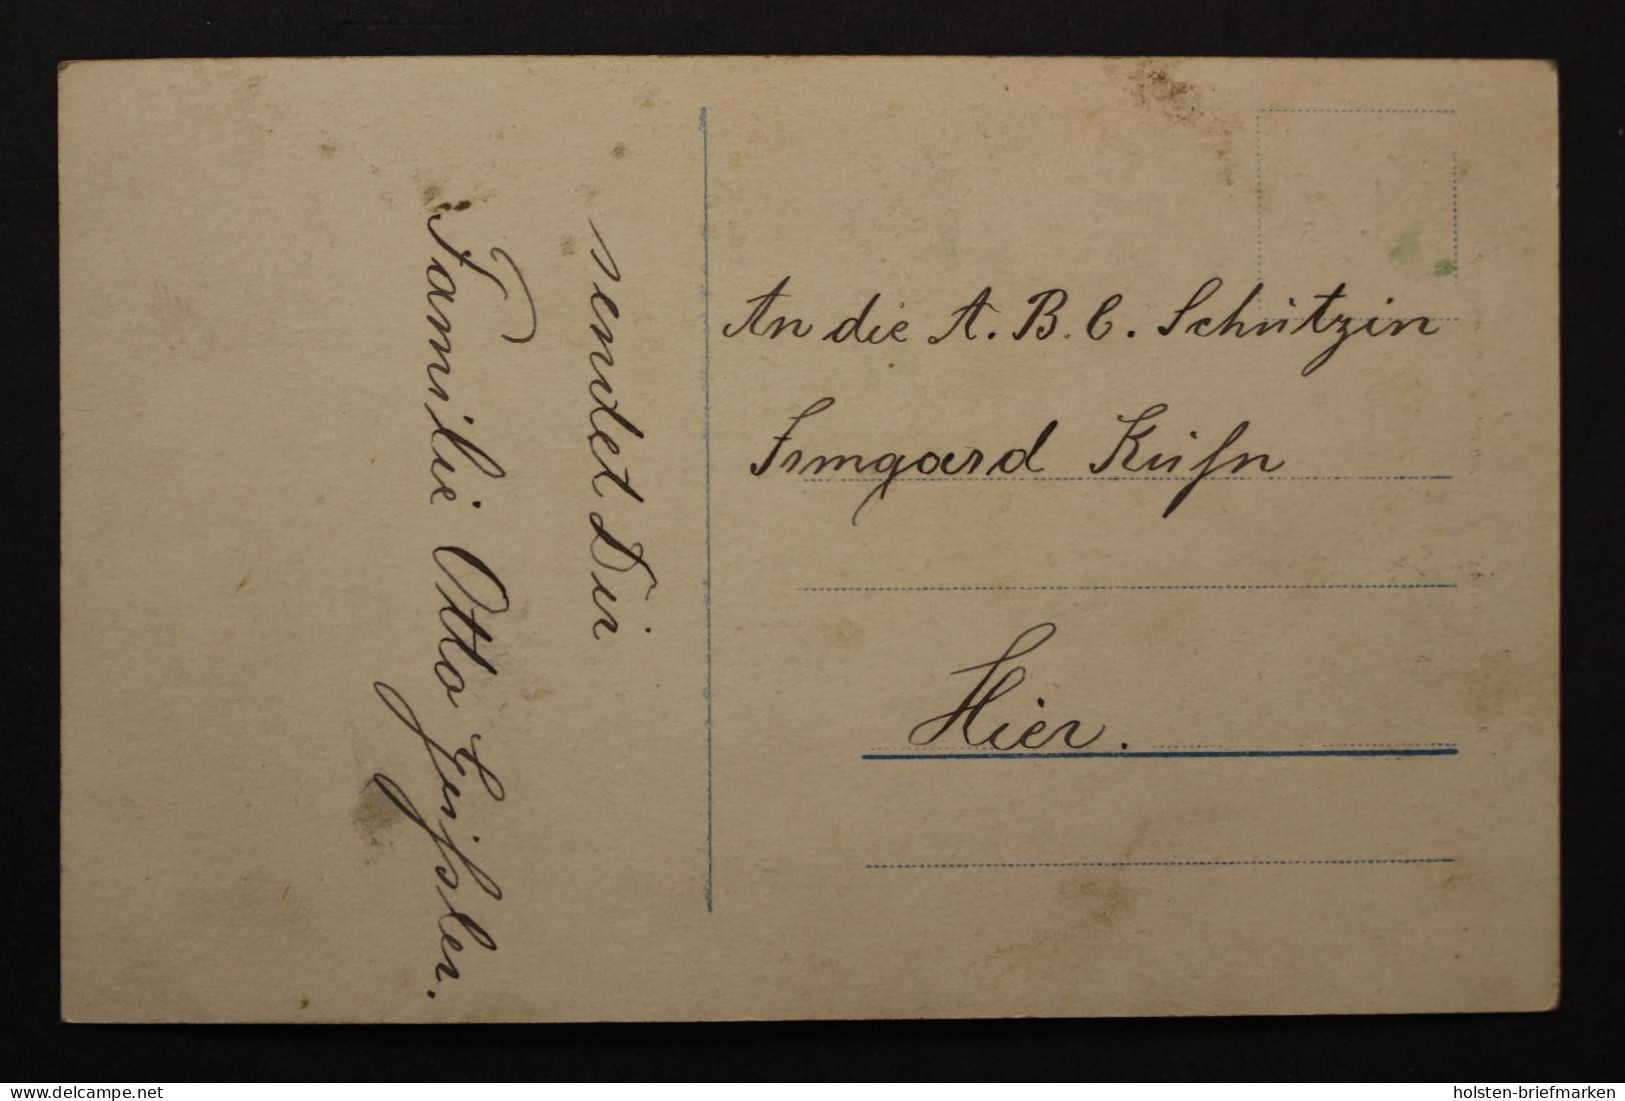 sendet Dir
Familie Otto Geißler.
An die A. B. C. Schützin
Irmgard Kühn
Hier.
© delcampe.net
holsten-briefmarken